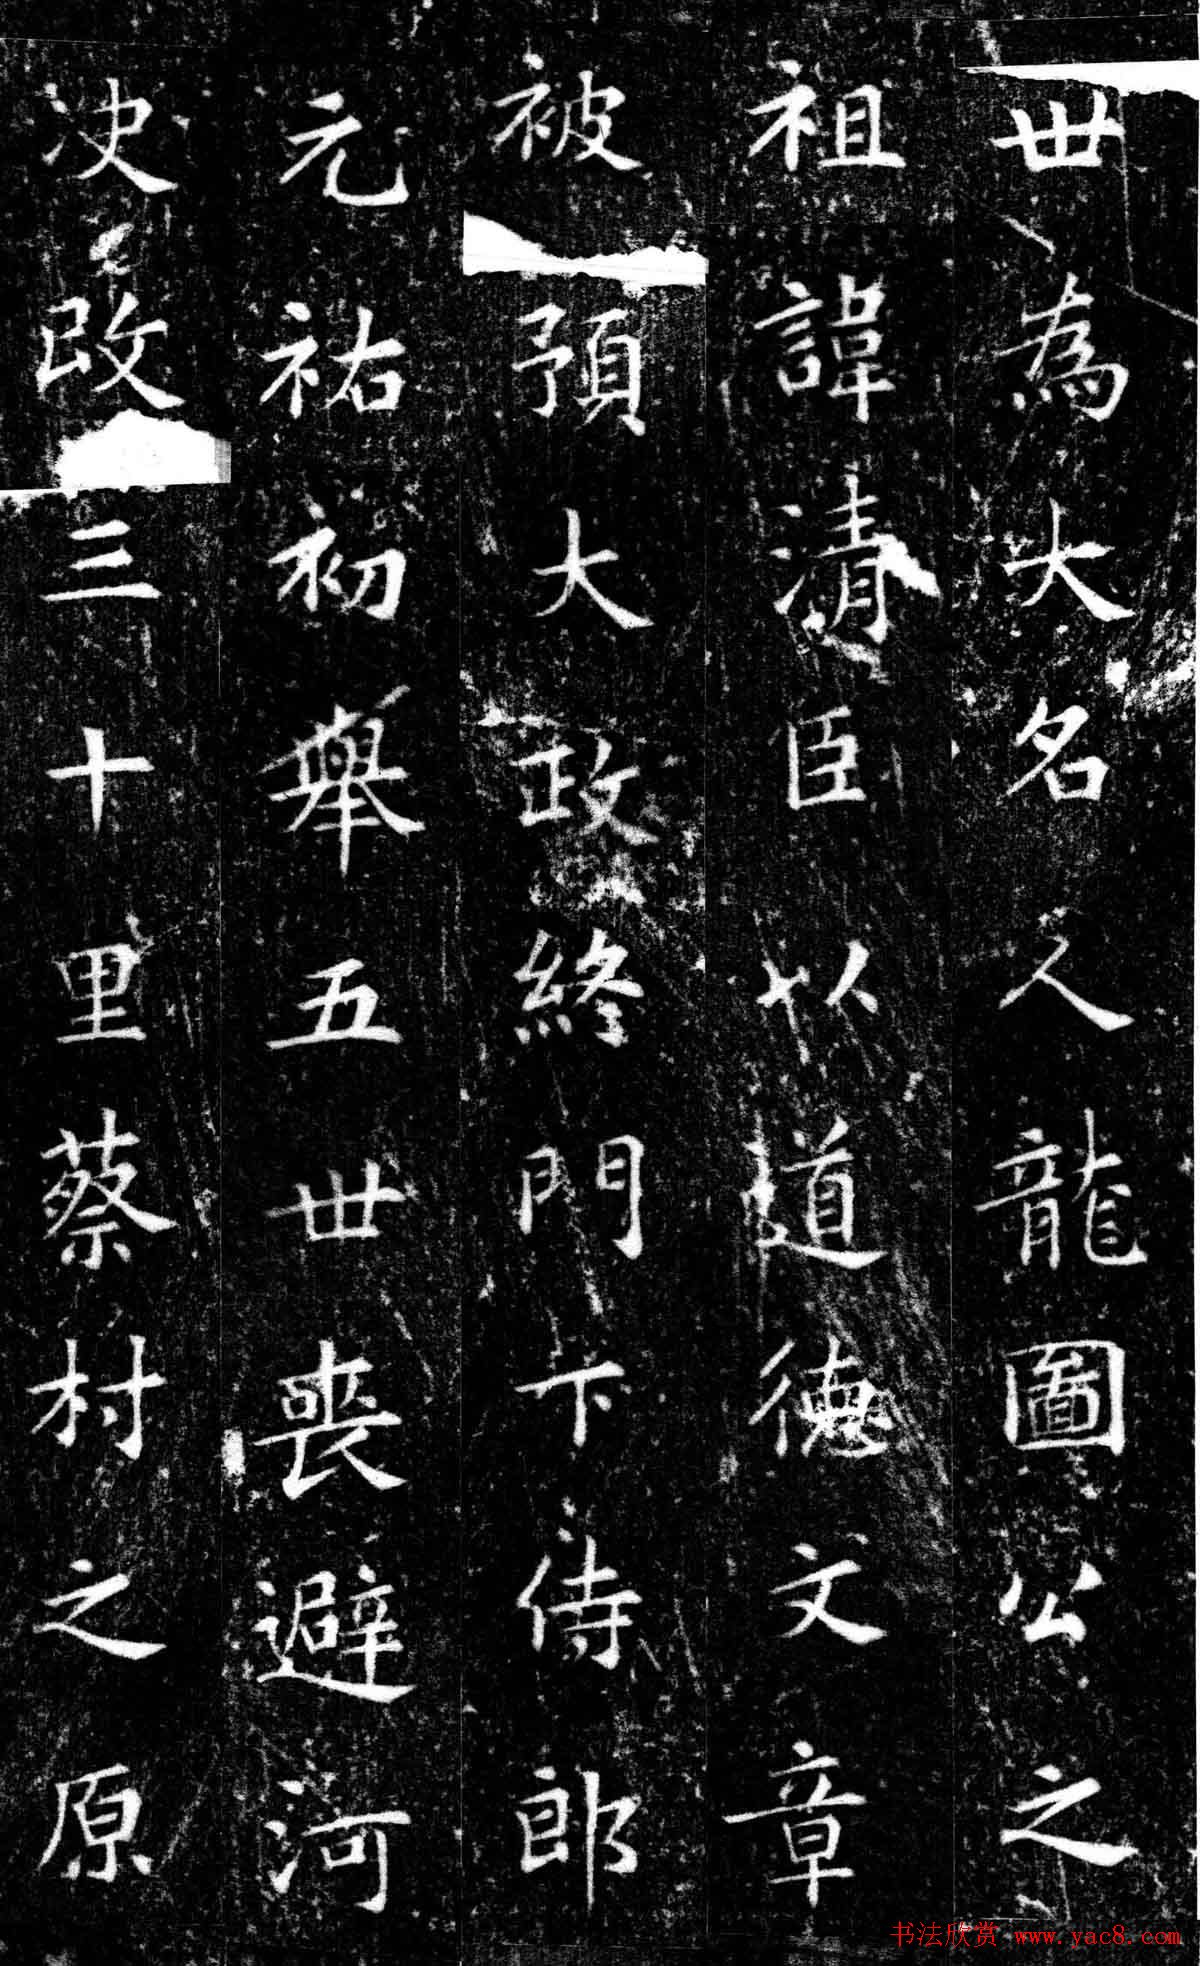 世為大名人龍圖公之
祖諱清臣以道德文章
被預大政終門下侍郎
元祐初舉五世喪避河
决改三十里蔡村之原
书法欣赏 www.yac8.com